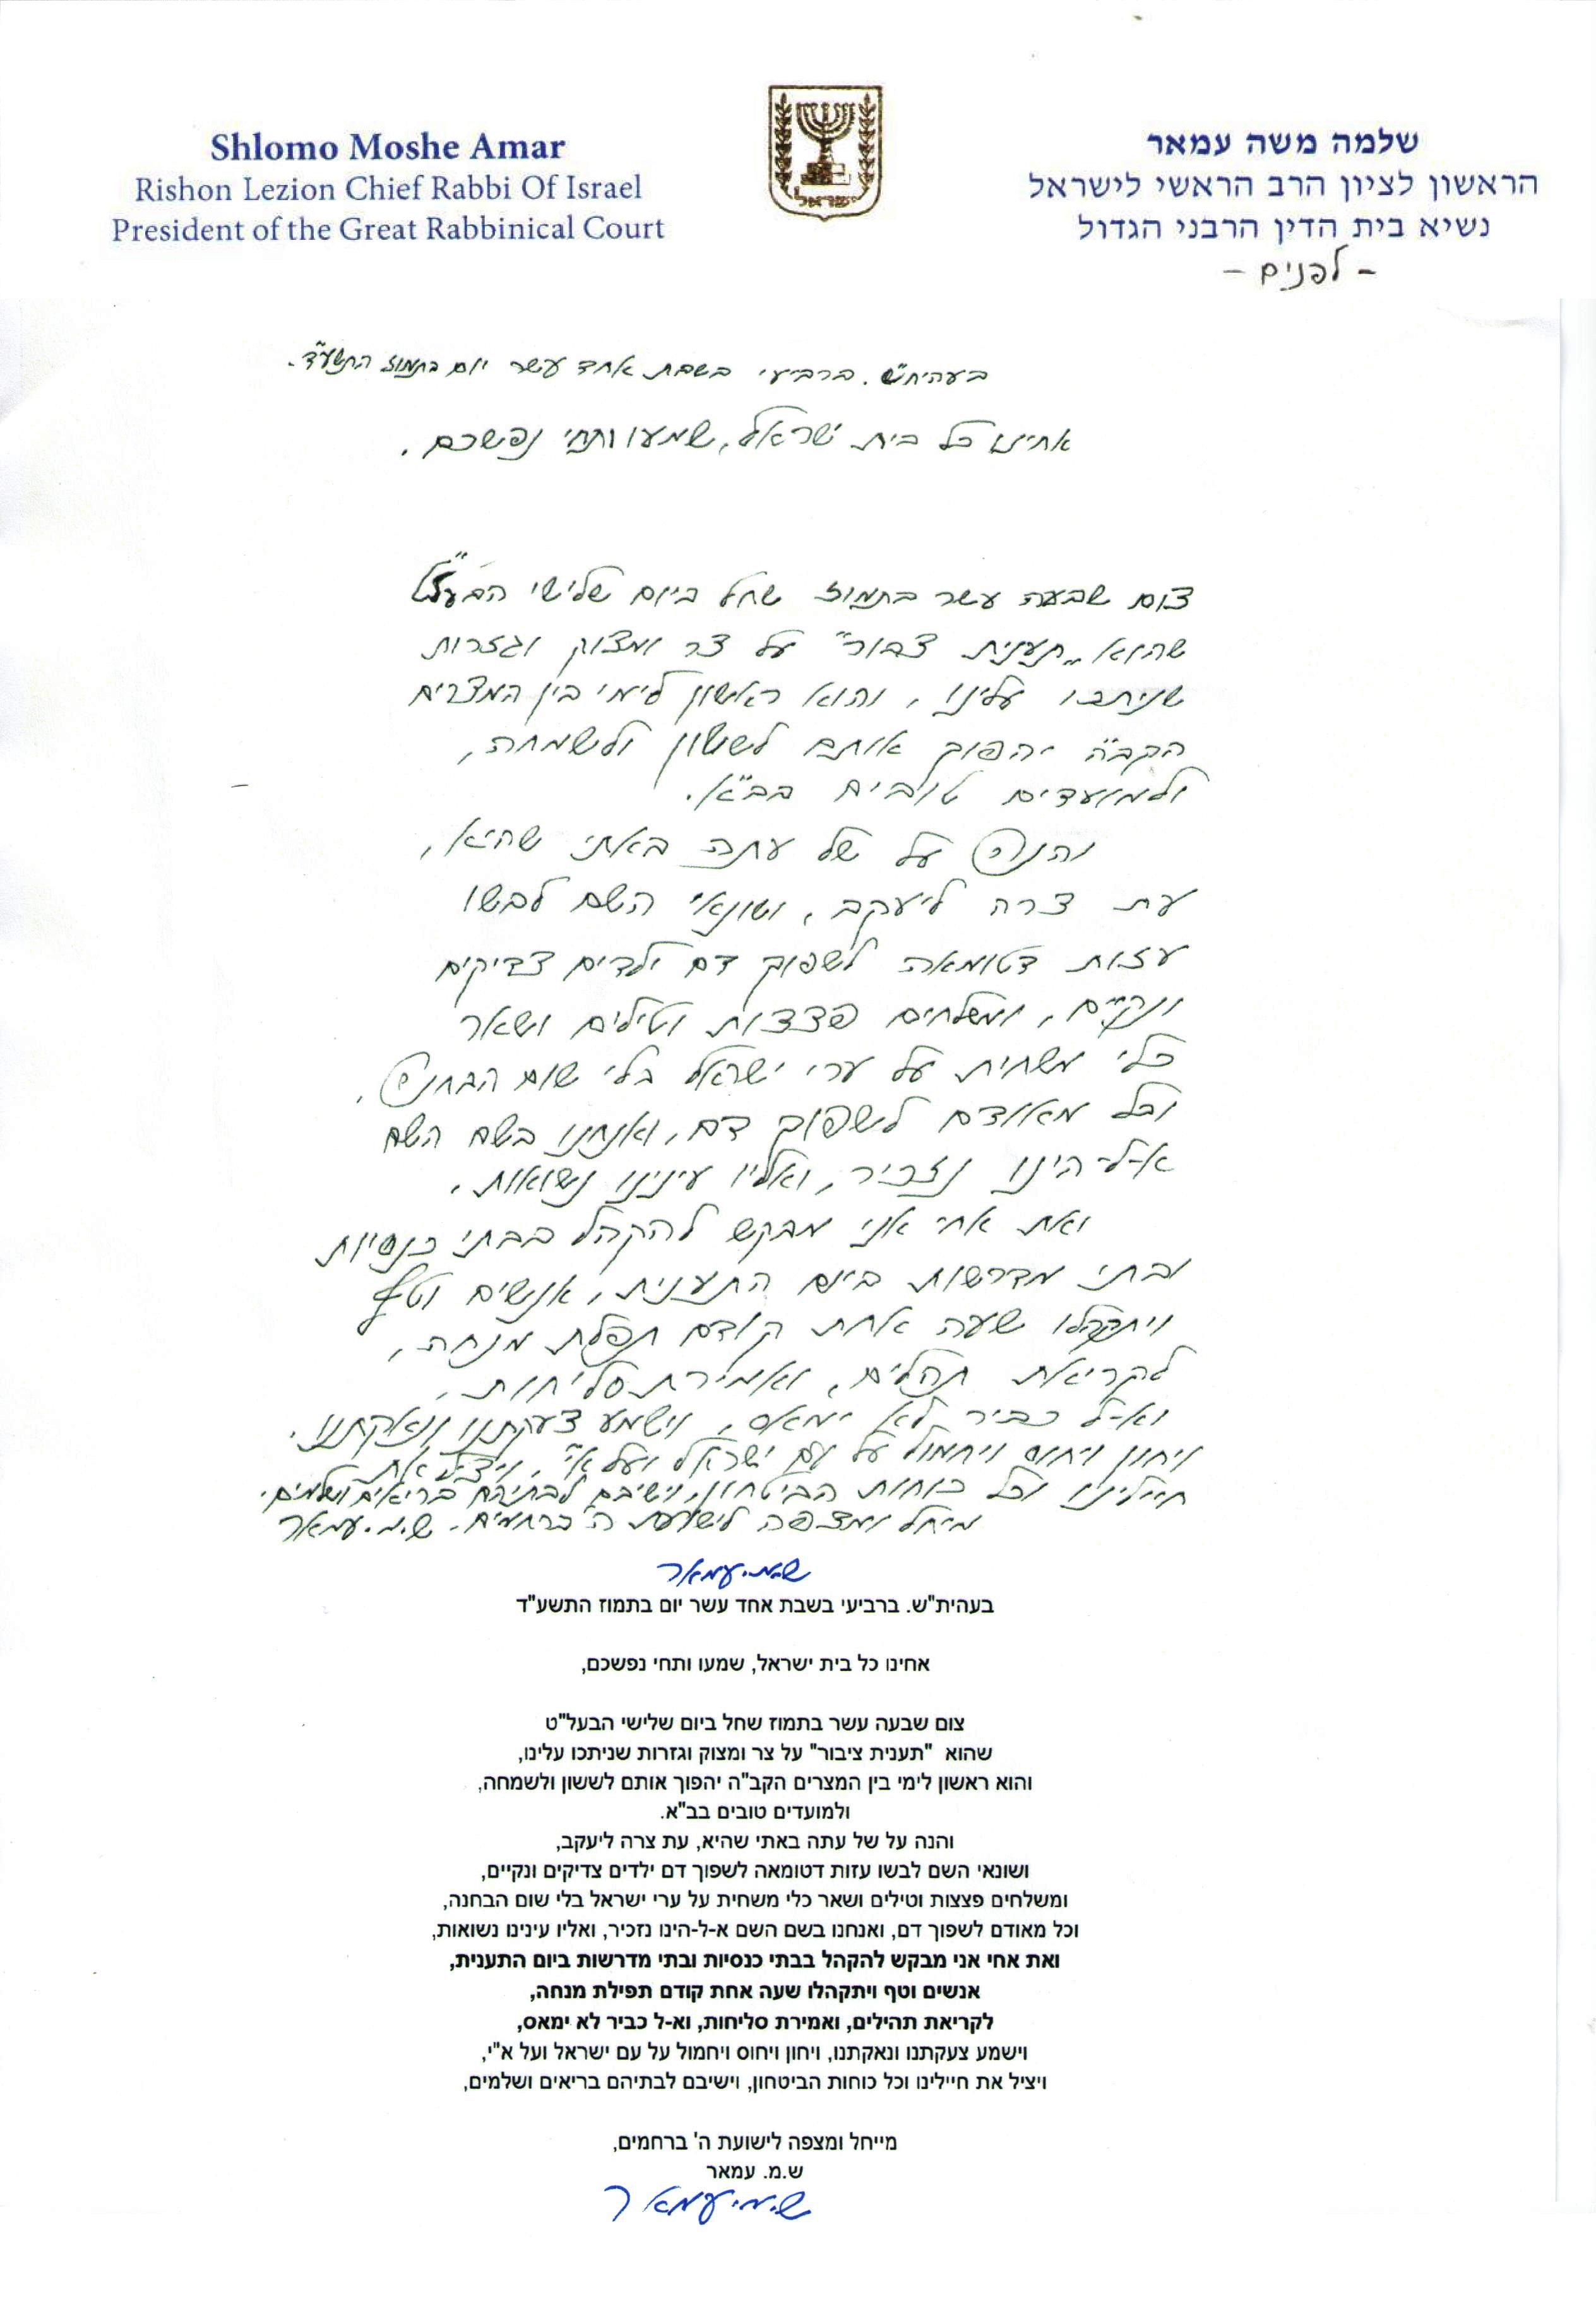 Shlomo Moshe Amar
Rishon Lezion Chief Rabbi Of Israel
President of the Great Rabbinical Court
ישראל
שלמה משה עמאר
הראשון לציון הרב הראשי לישראל
נשיא בית הדין הרבני הגדול
- לפנים -
בעהית"ש. ברביעי בשבת אחד עשר יום בתמוז התשע"ד.
אחינו כל בית ישראל, שמעו ותחי נפשכם.
צום שבעה עשר בתמוז שחל ביום שלישי הבעל"ט
שהוא "תענית צבור" על צר ומצוק וגזרות
שניתכו עלינו, והוא ראשון לימי בין המצרים
הקב"ה יהפוך אותם לששון ולשמחה,
ולמועדים טובים בב"א.
והנה על של עתה באתי שהיא,
עת צרה ליעקב, ושונאי השם לבשו
עזות דטומאה לשפוך דם ילדים צדיקים
ונקיים, ומשלחים פצצות וטילים ושאר
כלי משחית על ערי ישראל בלי שום הבחנה,
וכל מאודם לשפוך דם, ואנחנו בשם השם
א-ל-הינו נזכיר, ואליו עינינו נשואות,
ואת אחי אני מבקש להקהל בבתי כנסיות
ובתי מדרשות ביום התענית, אנשים וטף
ויתקהלו שעה אחת קודם תפלת מנחה,
לקריאת תהלים, ואמירת סליחות,
וא-ל כביר לא ימאס, וישמע צעקתנו ונאקתנו,
ויחון ויחוס ויחמול על עם ישראל ועל א"י, ויציל את
חיילינו וכל כוחות הביטחון, וישיבם לבתיהם בריאים ושלמים,
מיחל ומצפה לישועת ה' ברחמים. ש.מ. עמאר
ש.מ. עמאר
בעהית"ש. ברביעי בשבת אחד עשר יום בתמוז התשע"ד
אחינו כל בית ישראל, שמעו ותחי נפשכם,
צום שבעה עשר בתמוז שחל ביום שלישי הבעל"ט
שהוא "תענית ציבור" על צר ומצוק וגזרות שניתכו עלינו,
והוא ראשון לימי בין המצרים הקב"ה יהפוך אותם לששון ולשמחה,
ולמועדים טובים בב"א.
והנה על של עתה באתי שהיא, עת צרה ליעקב,
ושונאי השם לבשו עזות דטומאה לשפוך דם ילדים צדיקים ונקיים,
ומשלחים פצצות וטילים ושאר כלי משחית על ערי ישראל בלי שום הבחנה,
וכל מאודם לשפוך דם, ואנחנו בשם השם א-ל-הינו נזכיר, ואליו עינינו נשואות,
ואת אחי אני מבקש להקהל בבתי כנסיות ובתי מדרשות ביום התענית,
אנשים וטף ויתקהלו שעה אחת קודם תפילת מנחה,
לקריאת תהילים, ואמירת סליחות, וא-ל כביר לא ימאס,
וישמע צעקתנו ונאקתנו, ויחון ויחוס ויחמול על עם ישראל ועל א"י,
ויציל את חיילינו וכל כוחות הביטחון, וישיבם לבתיהם בריאים ושלמים,
מייחל ומצפה לישועת ה' ברחמים,
ש.מ. עמאר
ש.מ. עמאר